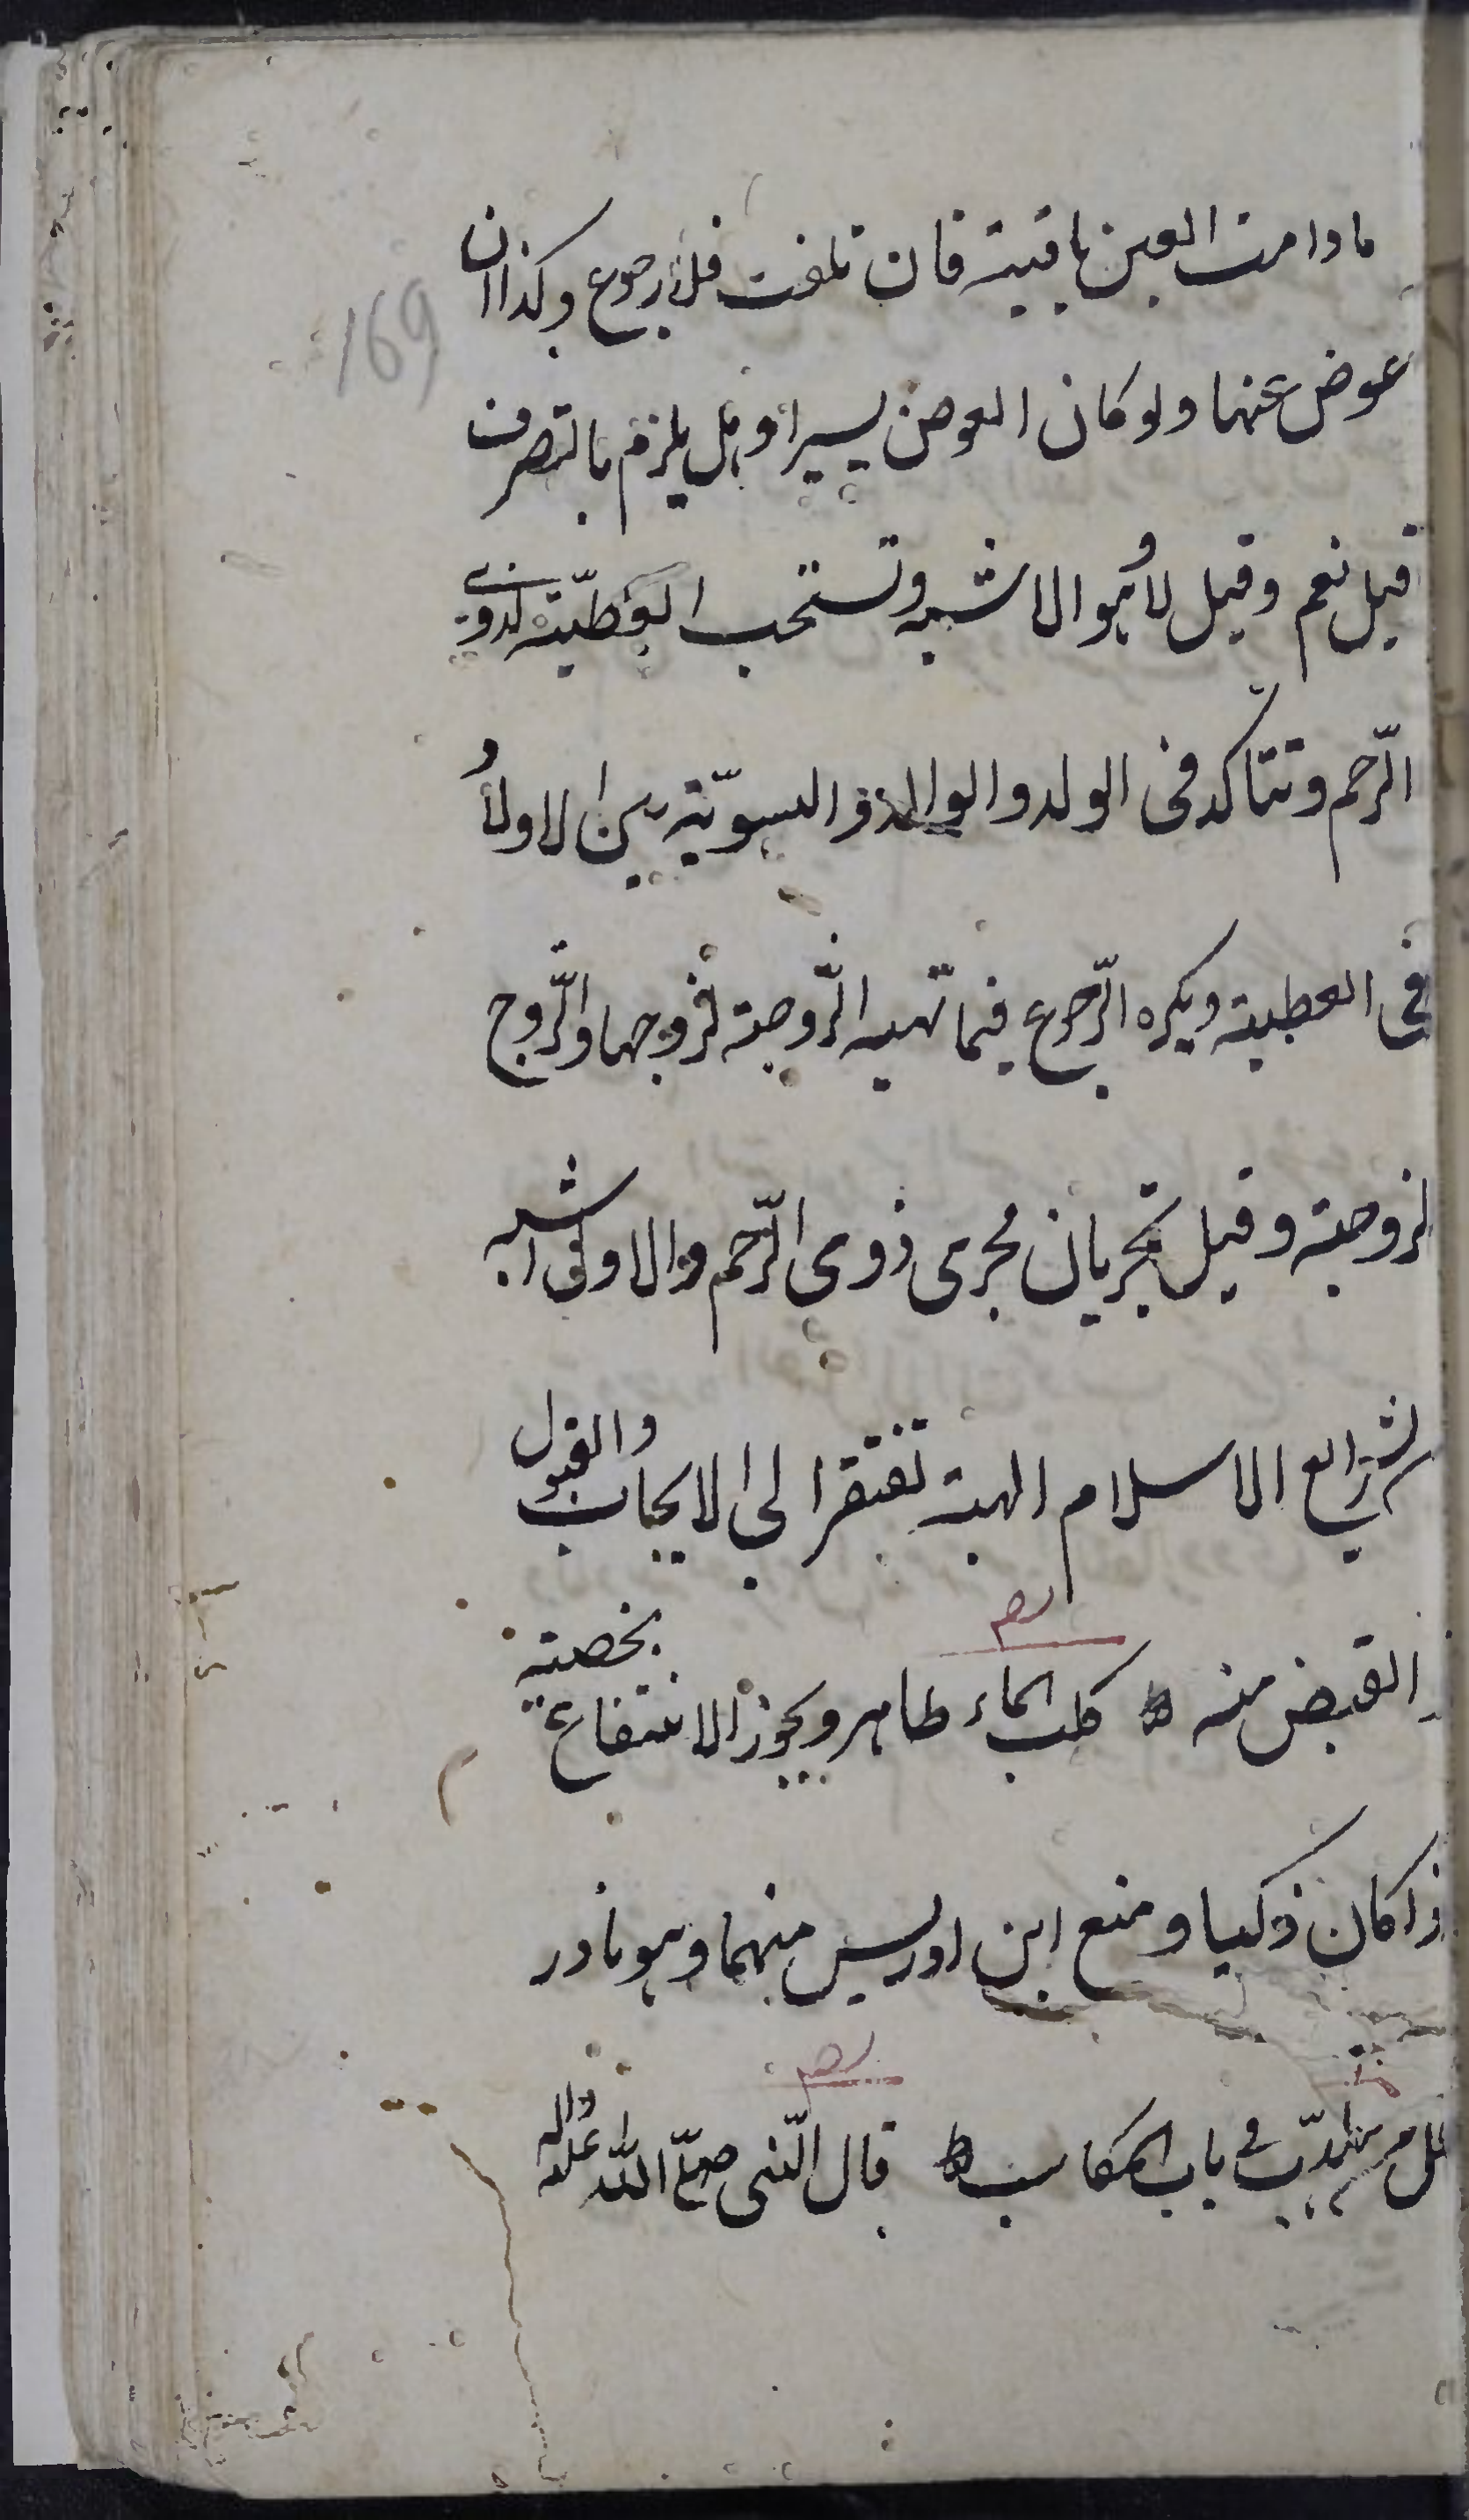 ما دامت العين باقية فان تلفت فلا رجوع وكذا ان
169
عوض عنها ولو كان العوض يسيرا وهل يلزم بالتصرف
قيل نعم وقيل لا وهو الاشبه وتستحب العطيّة لذوي
الرّحم وتتأكد في الولد والوالد والتسويّة بين الاولاد
في العطية ويكره الرّجوع فيما تهبه الزّوجة لزوجها والزّوج
لزوجته وقيل يجريان مجرى ذوى الرّحم والاول اشبه
شرايع الاسلام الهبة تفتقر الى الايجاب والقبول
القبض منه كلب الماء طاهر ويجوز الانتفاع بخصيته
ذا كان ذكيا ومنع ابن ادريس منهما وهو نادر
في باب المكاسب قال النّبى صلّى اللّه عليه واله